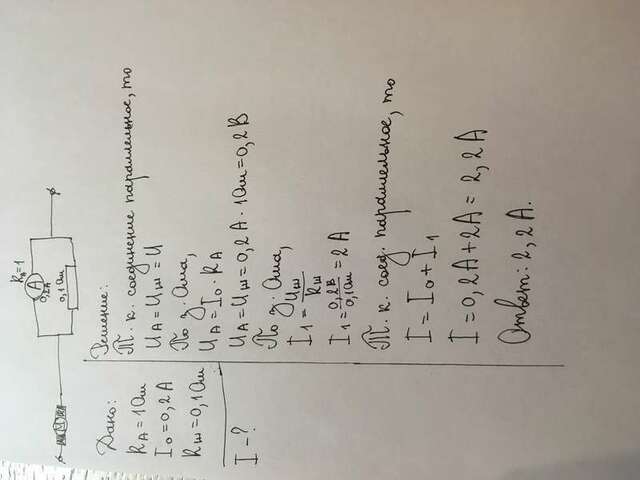 R_A=1
A
0,2А
М
0,1 Ом
Дано:
R_A = 1 Ом
I_0 = 0,2 А
R_ш = 0,1 Ом
I - ?
Решение:
Т. к. соединение параллельное, то
U_A = U_ш = U
По з. Ома,
U_A = I_0 · R_A
U_A = U_ш = 0,2 А · 1 Ом = 0,2 В
По з. Ома,
I_1 = U_ш / R_ш
I_1 = 0,2 В / 0,1 Ом = 2 А
Т. к. соед. параллельное, то
I = I_0 + I_1
I = 0,2 А + 2 А = 2,2 А
Ответ: 2,2 А.